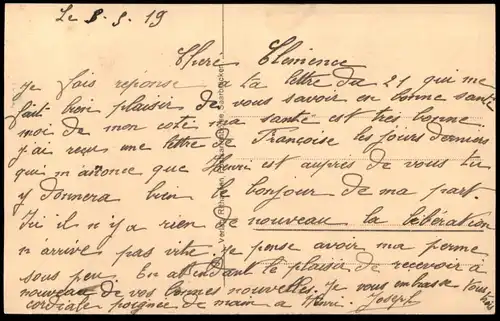 Le 8. 5. 19
Cheré Clemence
Je fais reponse a ta lettre du 21 qui me
fait bien plaisir de vous savoir en bonne santé
moi de mon coté ma santé est très bonne
j'ai reçu une lettre de Françoise les jours derniers
qui m'annonce que Henri est aupris de vous tu
y donnera bien le bonjour de ma part.
Ici il n'y a rien de nouveau la libération
n'arrive pas vite je pense avoir ma perme
sous peu. En attendant le plaisir de recevoir a
nouveau de vos bonnes nouvelles. Je vous embrasse tous
cordiale poignée de main a Henri. Joseph
Verlag